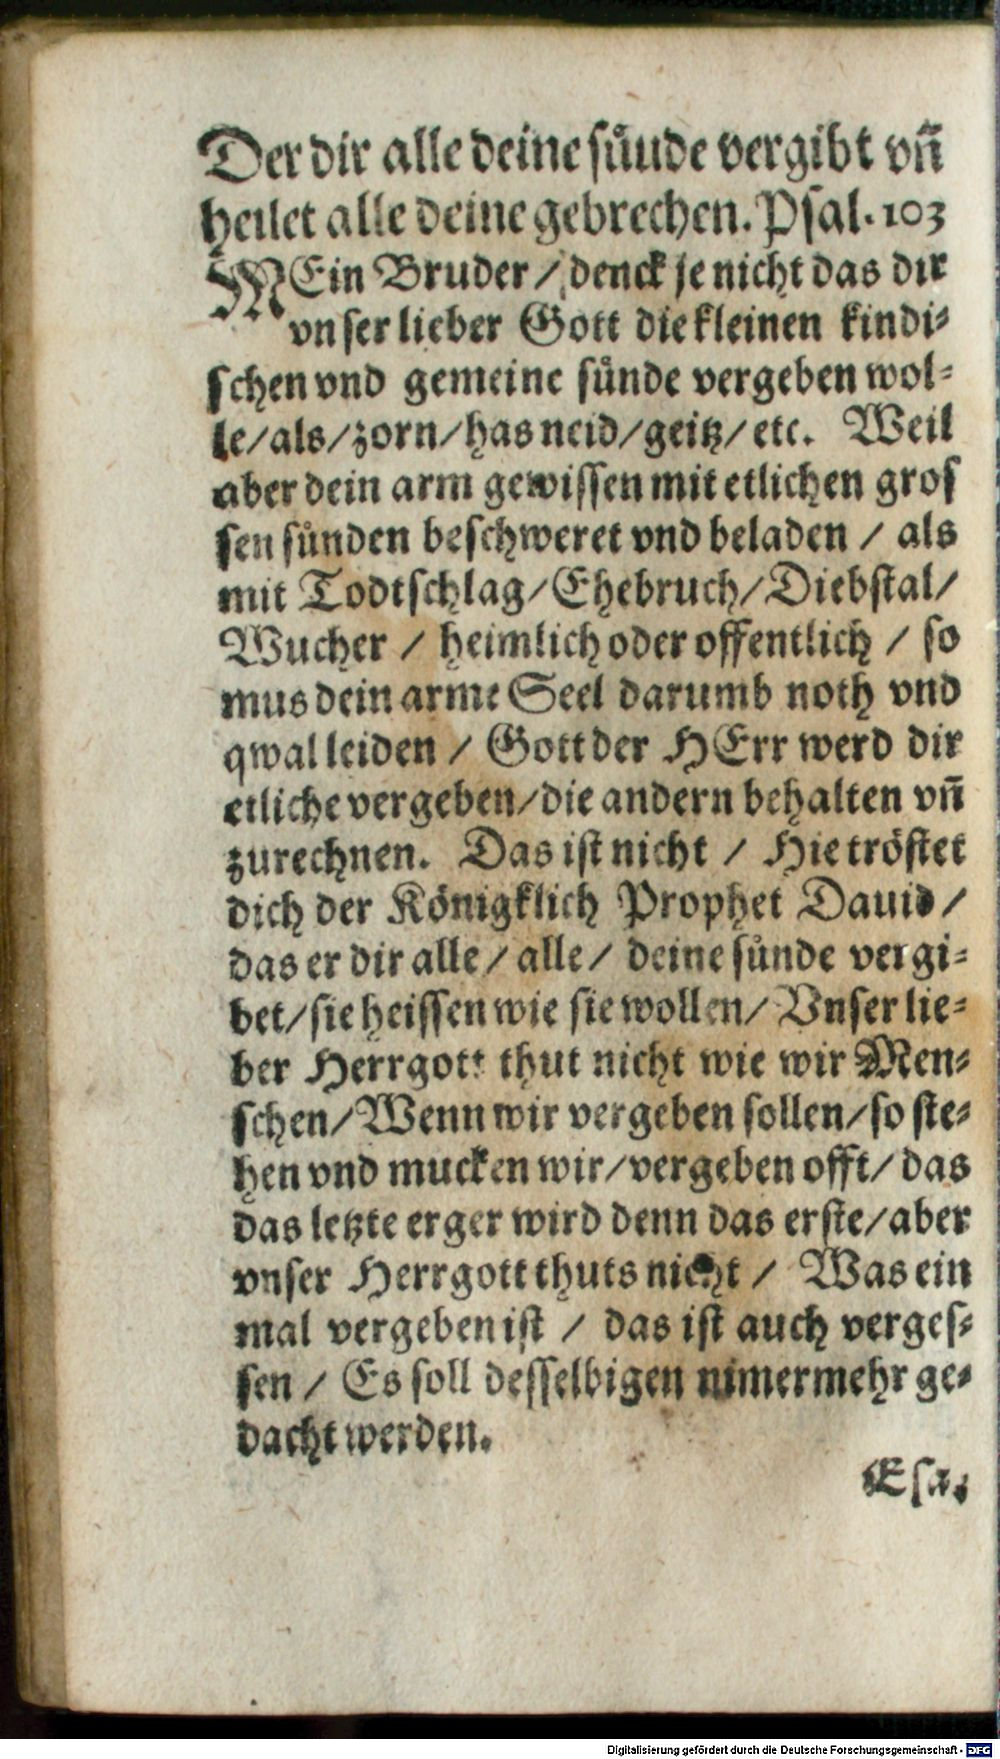 Der dir alle deine suͤnde vergibt vñ
heilet alle deine gebrechen. Psal. 103
MEin Bruder / denck je nicht das dir
vnser lieber Gott die kleinen kindi⸗
schen vnd gemeine suͤnde vergeben wol⸗
le/als/zorn/has neid/geitz/etc. Weil
aber dein arm gewissen mit etlichen gros
sen suͤnden beschweret vnd beladen / als
mit Todtschlag/Ehebruch/Diebstal/
Wucher / heimlich oder offentlich / so
mus dein arme Seel darumb noth vnd
qwal leiden / Gott der HErr werd dir
etliche vergeben/die andern behalten vñ
zurechnen. Das ist nicht / Hie tröstet
dich der Königklich Prophet Dauid /
das er dir alle / alle / deine suͤnde vergi⸗
bet/sie heissen wie sie wollen/ Vnser lie⸗
ber Herrgott thut nicht wie wir Men⸗
schen/Wenn wir vergeben sollen/so ste⸗
hen vnd mucken wir/vergeben offt/das
das letzte erger wird denn das erste/aber
vnser Herrgott thuts nicht / Was ein
mal vergeben ist / das ist auch verges⸗
sen / Es soll desselbigen nimermehr ge⸗
dacht werden.
Esa.
Digitalisierung gefördert durch die Deutsche Forschungsgemeinschaft - DFG